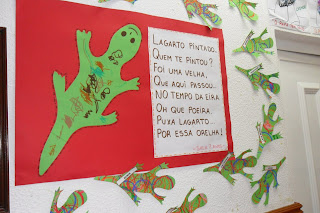 LAGARTO PINTADO
QUEM TE PINTOU?
FOI UMA VELHA,
QUE AQUI PASSOU...
NO TEMPO DA EIRA
OH QUE POEIRA,
PUXA LAGARTO...
POR ESSA ORELHA!